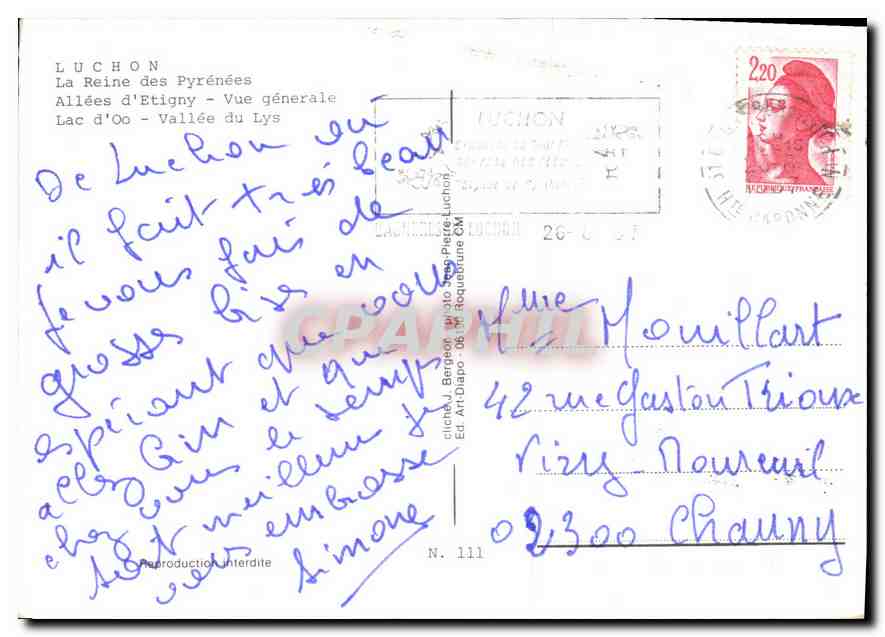 LUCHON
La Reine des Pyrénées
Allées d'Etigny - Vue génerale
Lac d'Oo - Vallée du Lys
De Luchon où
il fait très beau
Je vous fais de
grosses bises en
espérant que vous
allez bien et que
chez vous le temps
soit meilleur je
vous embrasse
Simone
Reproduction interdite
N. 111
cliché J. Bergeon - photo Jean-Pierre-Luchon
Ed. Art-Diapo - 06 Roquebrune CM
LUCHON
LUCHON 26-
2,20
REPUBLIQUE FRANÇAISE
Hte GARONNE
CPAPHIL
Mme Mouillart
42 rue Gaston Trioux
Viry-Noureuil
02300 Chauny